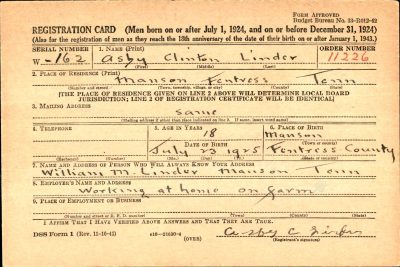 FORM APPROVED
Budget Bureau No. 33-R012-42
REGISTRATION CARD—(Men born on or after July 1, 1924, and on or before December 31, 1924)
(Also for the registration of men as they reach the 18th anniversary of the date of their birth on or after January 1, 1943.)
SERIAL NUMBER 1. NAME (Print) ORDER NUMBER
W-162 Asby Clinton Linder 11226
(First) (Middle) (Last)
2. PLACE OF RESIDENCE (Print)
Manson Fentress Tenn
(Number and street) (Town, township, village, or city) (County) (State)
[THE PLACE OF RESIDENCE GIVEN ON LINE 2 ABOVE WILL DETERMINE LOCAL BOARD
JURISDICTION; LINE 2 OF REGISTRATION CERTIFICATE WILL BE IDENTICAL]
3. MAILING ADDRESS
same
(Mailing address if other than place indicated on line 2. If same, insert word same)
4. TELEPHONE 5. AGE IN YEARS 6. PLACE OF BIRTH
18 Manson
DATE OF BIRTH (Town or county)
July 23 1925 Fentress County
(Exchange) (Number) (Mo.) (Day) (Yr.) (State or country)
7. NAME AND ADDRESS OF PERSON WHO WILL ALWAYS KNOW YOUR ADDRESS
William M. Linder Manson Tenn
8. EMPLOYER'S NAME AND ADDRESS
Working at home on farm
9. PLACE OF EMPLOYMENT OR BUSINESS
(Number and street or R. F. D. number) (Town) (County) (State)
I AFFIRM THAT I HAVE VERIFIED ABOVE ANSWERS AND THAT THEY ARE TRUE.
DSS Form 1 (Rev. 11-16-42) (OVER) Asby C Linder
(Registrant's signature)